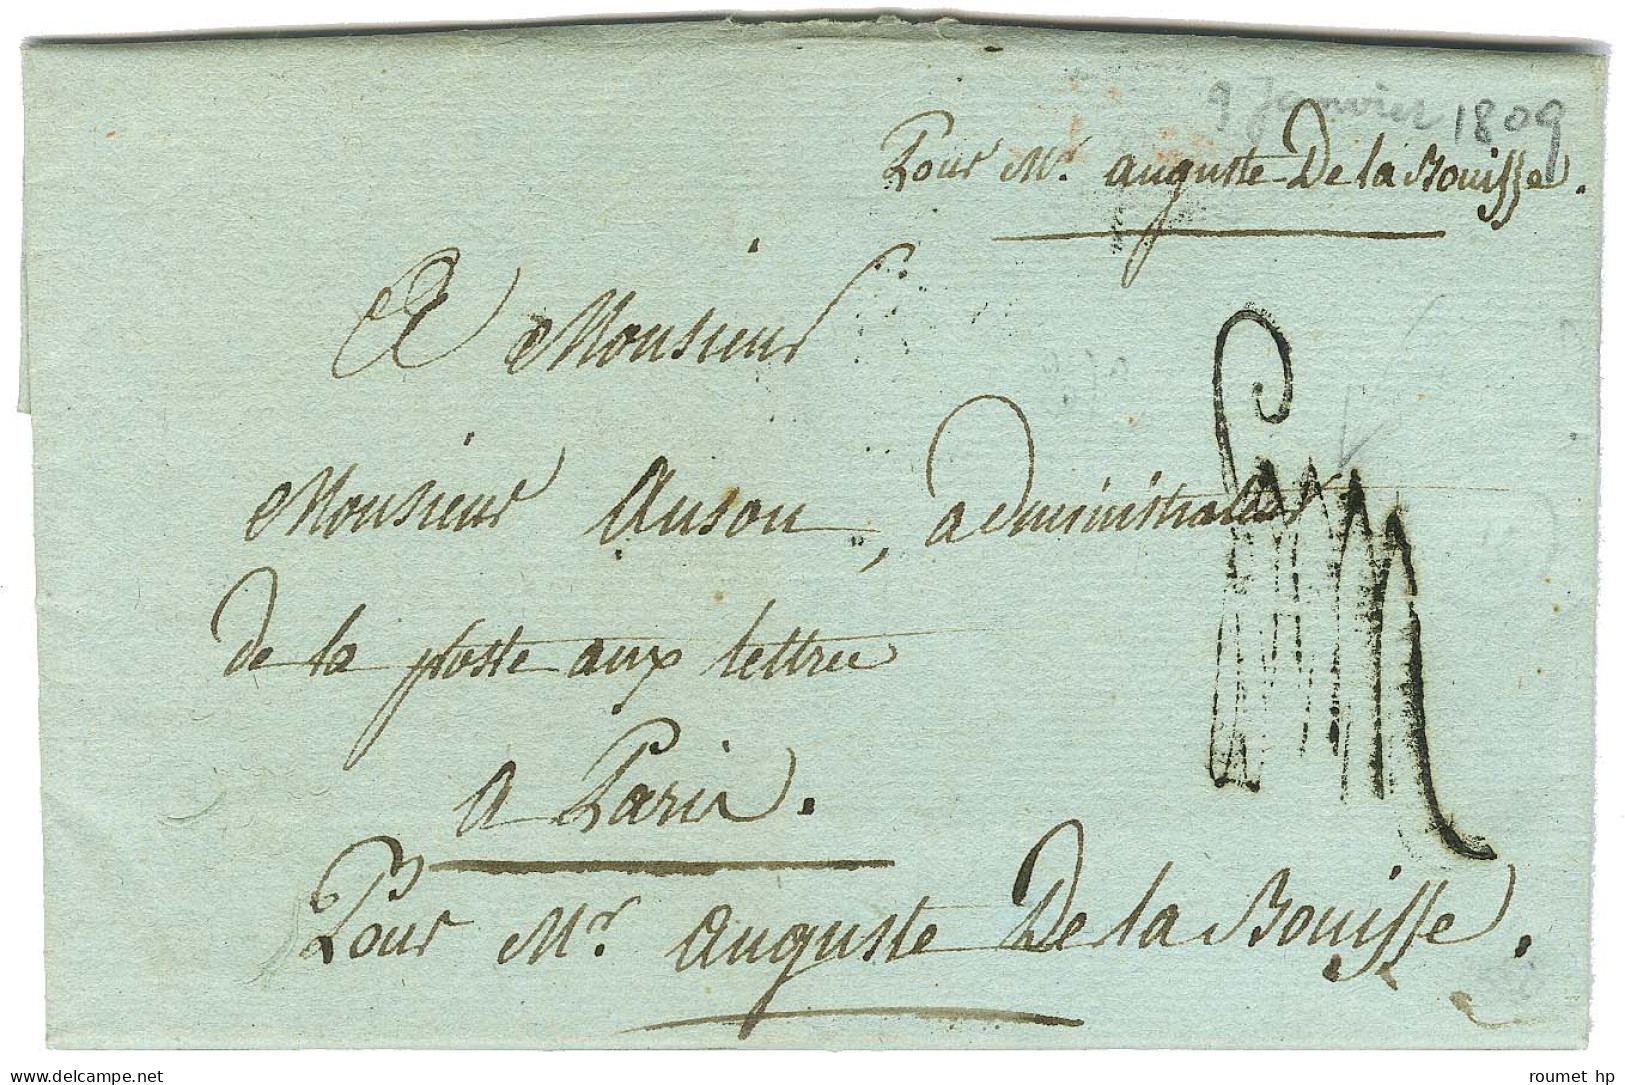 9 Janvier 1809
Pour Mr. Auguste De la Bouisse.
A Monsieur
Monsieur Anson, administrateur
de la poste aux lettres
a Paris.
Pour Mr. Auguste De la Bouisse.
roumet hp